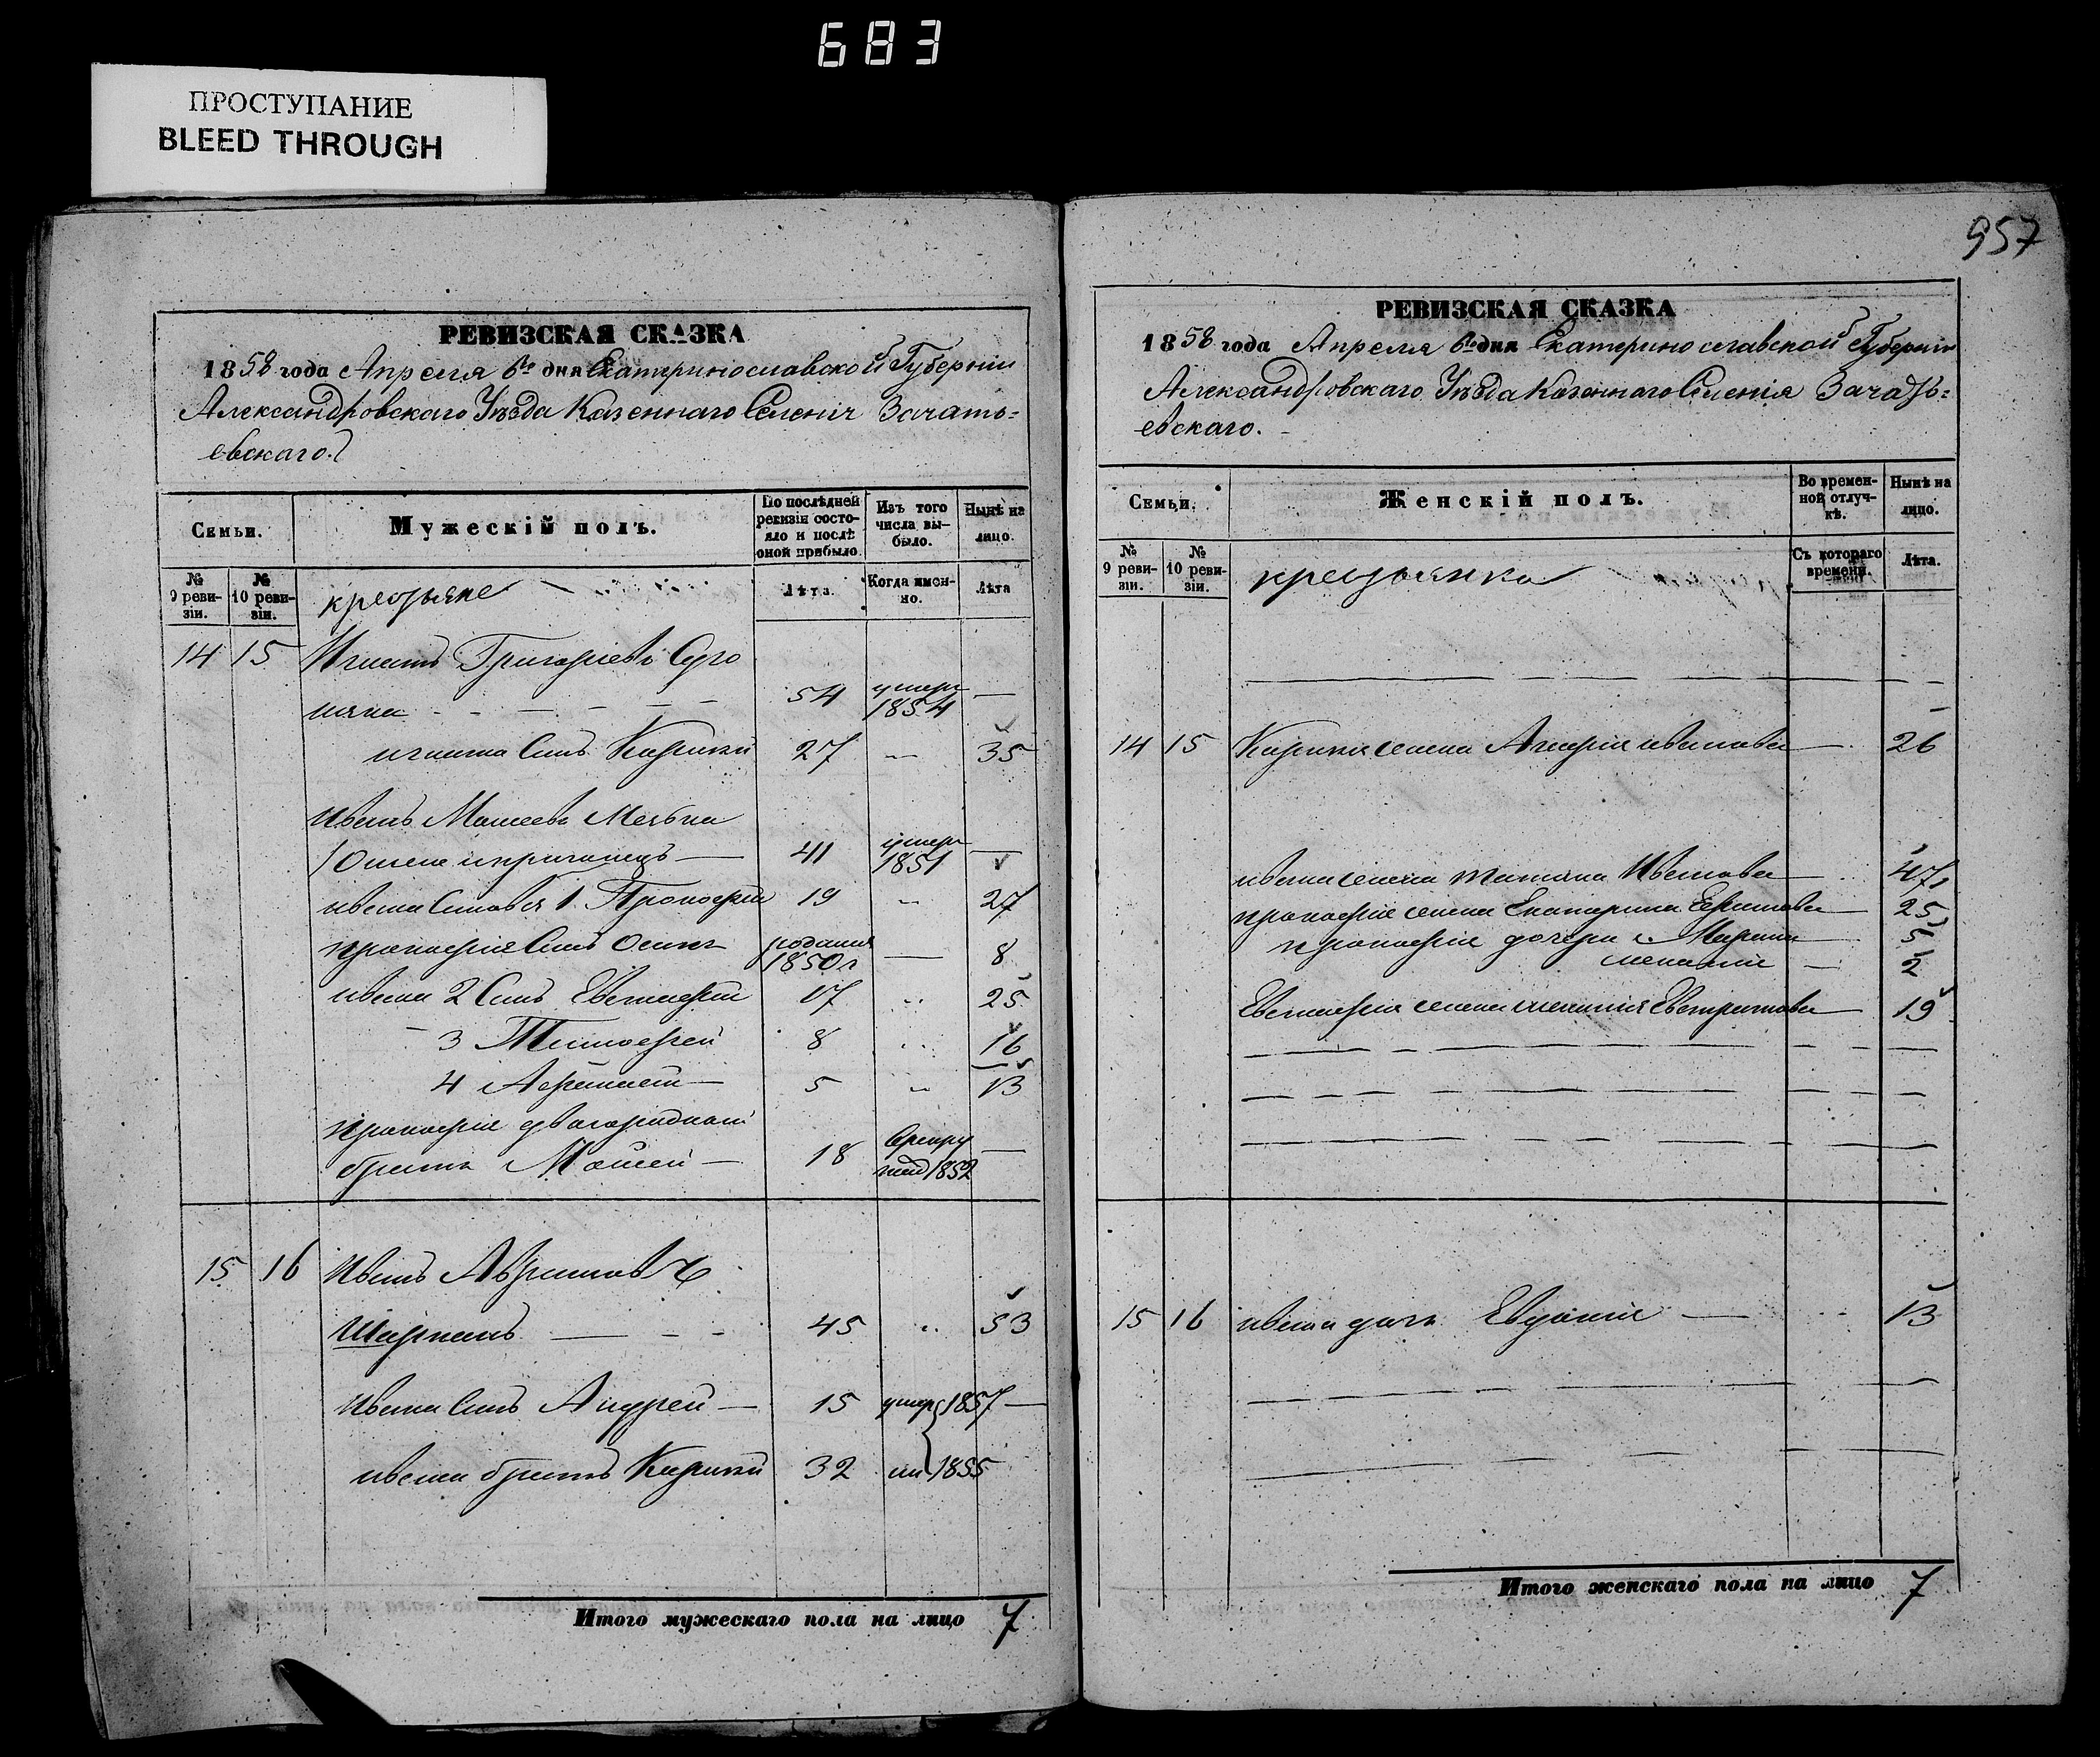 683
ПРОСТУПАНИЕ
BLEED THROUGH
РЕВИЗСКАЯ СКАЗКА
1858 года Апреля 6го дня Екатеринославской Губерніи
Александровскаго Уѣзда Казеннаго Селенія Зачать=
евскаго.
Семьи.
Мужескій полъ.
По послѣдней ревизіи состояло и послѣ оной прибыло.
Изъ того числа выбыло.
Нынѣ на лицо.
№ 9 ревизіи.
№ 10 ревизіи.
крестьяне
Лѣта.
Когда именно.
Лѣта
14 15 Игнатъ Григорьевъ
54 умеръ 1854 —
игната Сынъ 27 — 35
Иванъ Моисеевъ
41 умеръ 1851 —
ивана Сыновья 1. Прокофій 19 27
прокофія Сынъ Осипъ родился 1850г — 8
ивана 2 Сынъ Евстафій 17 25
3 Тимофей 8 16
4 Афанасій 5 13
прокофія двоюродной
братъ Моисей — 18 1852 —
15 16 Иванъ Аврамовъ
45 53
Ивана Сынъ Андрей — 15 умер 1857 —
ивана братъ 32 1855
Итого мужескаго пола на лицо 7
957
РЕВИЗСКАЯ СКАЗКА
1858 года Апреля 6го дня Екатеринославской Губерніи
Александровскаго Уѣзда Казеннаго Селенія Зачать=
евскаго.
Семьи.
Женскій полъ.
Во временной отлучкѣ.
Нынѣ на лицо.
№ 9 ревизіи.
№ 10 ревизіи.
Съ котораго времени.
Лѣта.
14 15 жена иванова — 26
ивана жена татьяна Иванова — 47
прокофія жена Екатерина — 25
прокофія дочери Марина — 5
меланія — 2
Евстафія жена — 19
15 16 ивана дочь — 13
Итого женскаго пола на лицо 7